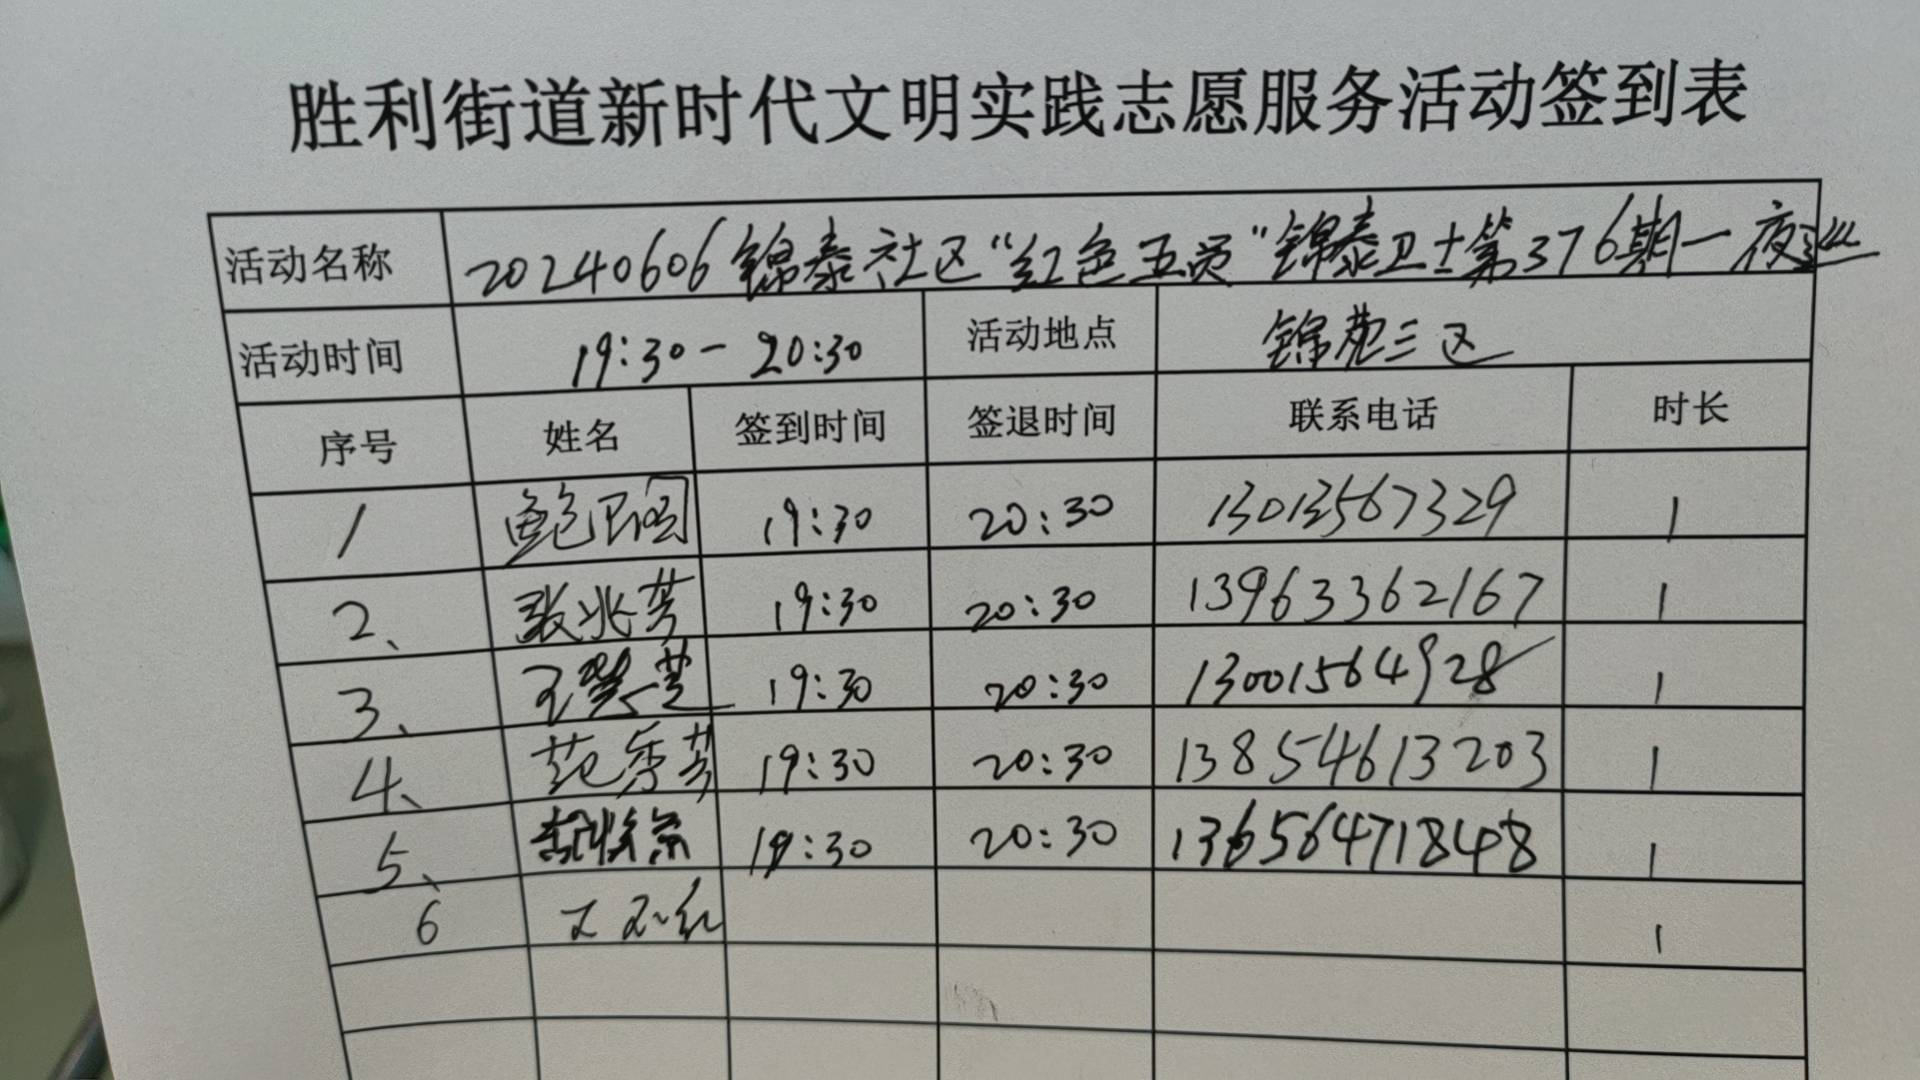 胜利街道新时代文明实践志愿服务活动签到表
活动名称 20240606锦泰社区“红色五员”锦泰卫士第376期一夜巡
活动时间 19:30-20:30 活动地点 锦苑三区
序号 姓名 签到时间 签退时间 联系电话 时长
1 19:30 20:30 13013567329 1
2、 张兆芳 19:30 20:30 13963362167 1
3、 19:30 20:30 13001564928 1
4、 范秀芳 19:30 20:30 13854613203 1
5、 19:30 20:30 136564718408 1
6 1